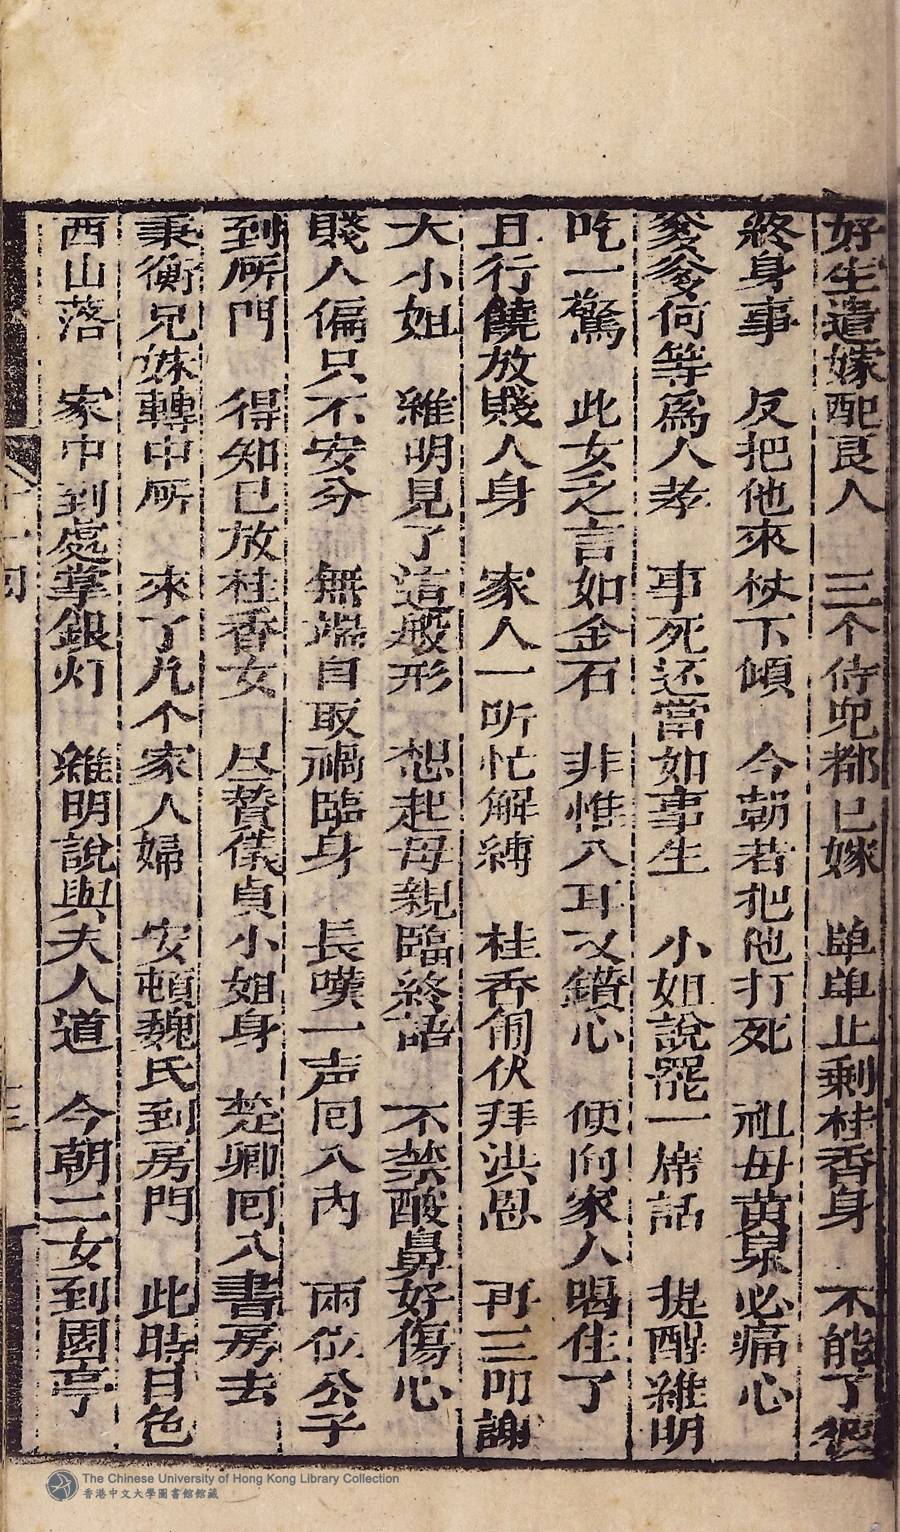 好生遣嫁配良人　三个侍児都已嫁　単単止剩桂香身　不能了
終身事　反把他來杖下傾　今朝若把他打死　祖母黄泉必痛心
爹爹何等爲人孝　事死还當如事生　小姐說罷一席話　提醒雖明
吃一驚　此女之言如金石　非惟入耳又鑽心　便向家人喝住了
且行饒放賤人身　家人一听忙解縛　桂香匍伏拜洪恩　再三叩謝
大小姐　雖明見了這般形　想起母親臨終語　不禁酸鼻好傷心
賤人偏只不安分　無端自取禍臨身　長嘆一声囘入内　兩位公子
到㕔門　得知已放桂香女　尽賛儀貞小姐身　楚卿囘入書房去
秉衡兄妹轉中㕔　來了几个家人婦　安頓魏氏到房門　此時日色
西山落　家中到處掌銀灯　雖明說與夫人道　今朝二女到園亭
十一囘
十三
The Chinese University of Hong Kong Library Collection
香港中文大學圖書館館藏